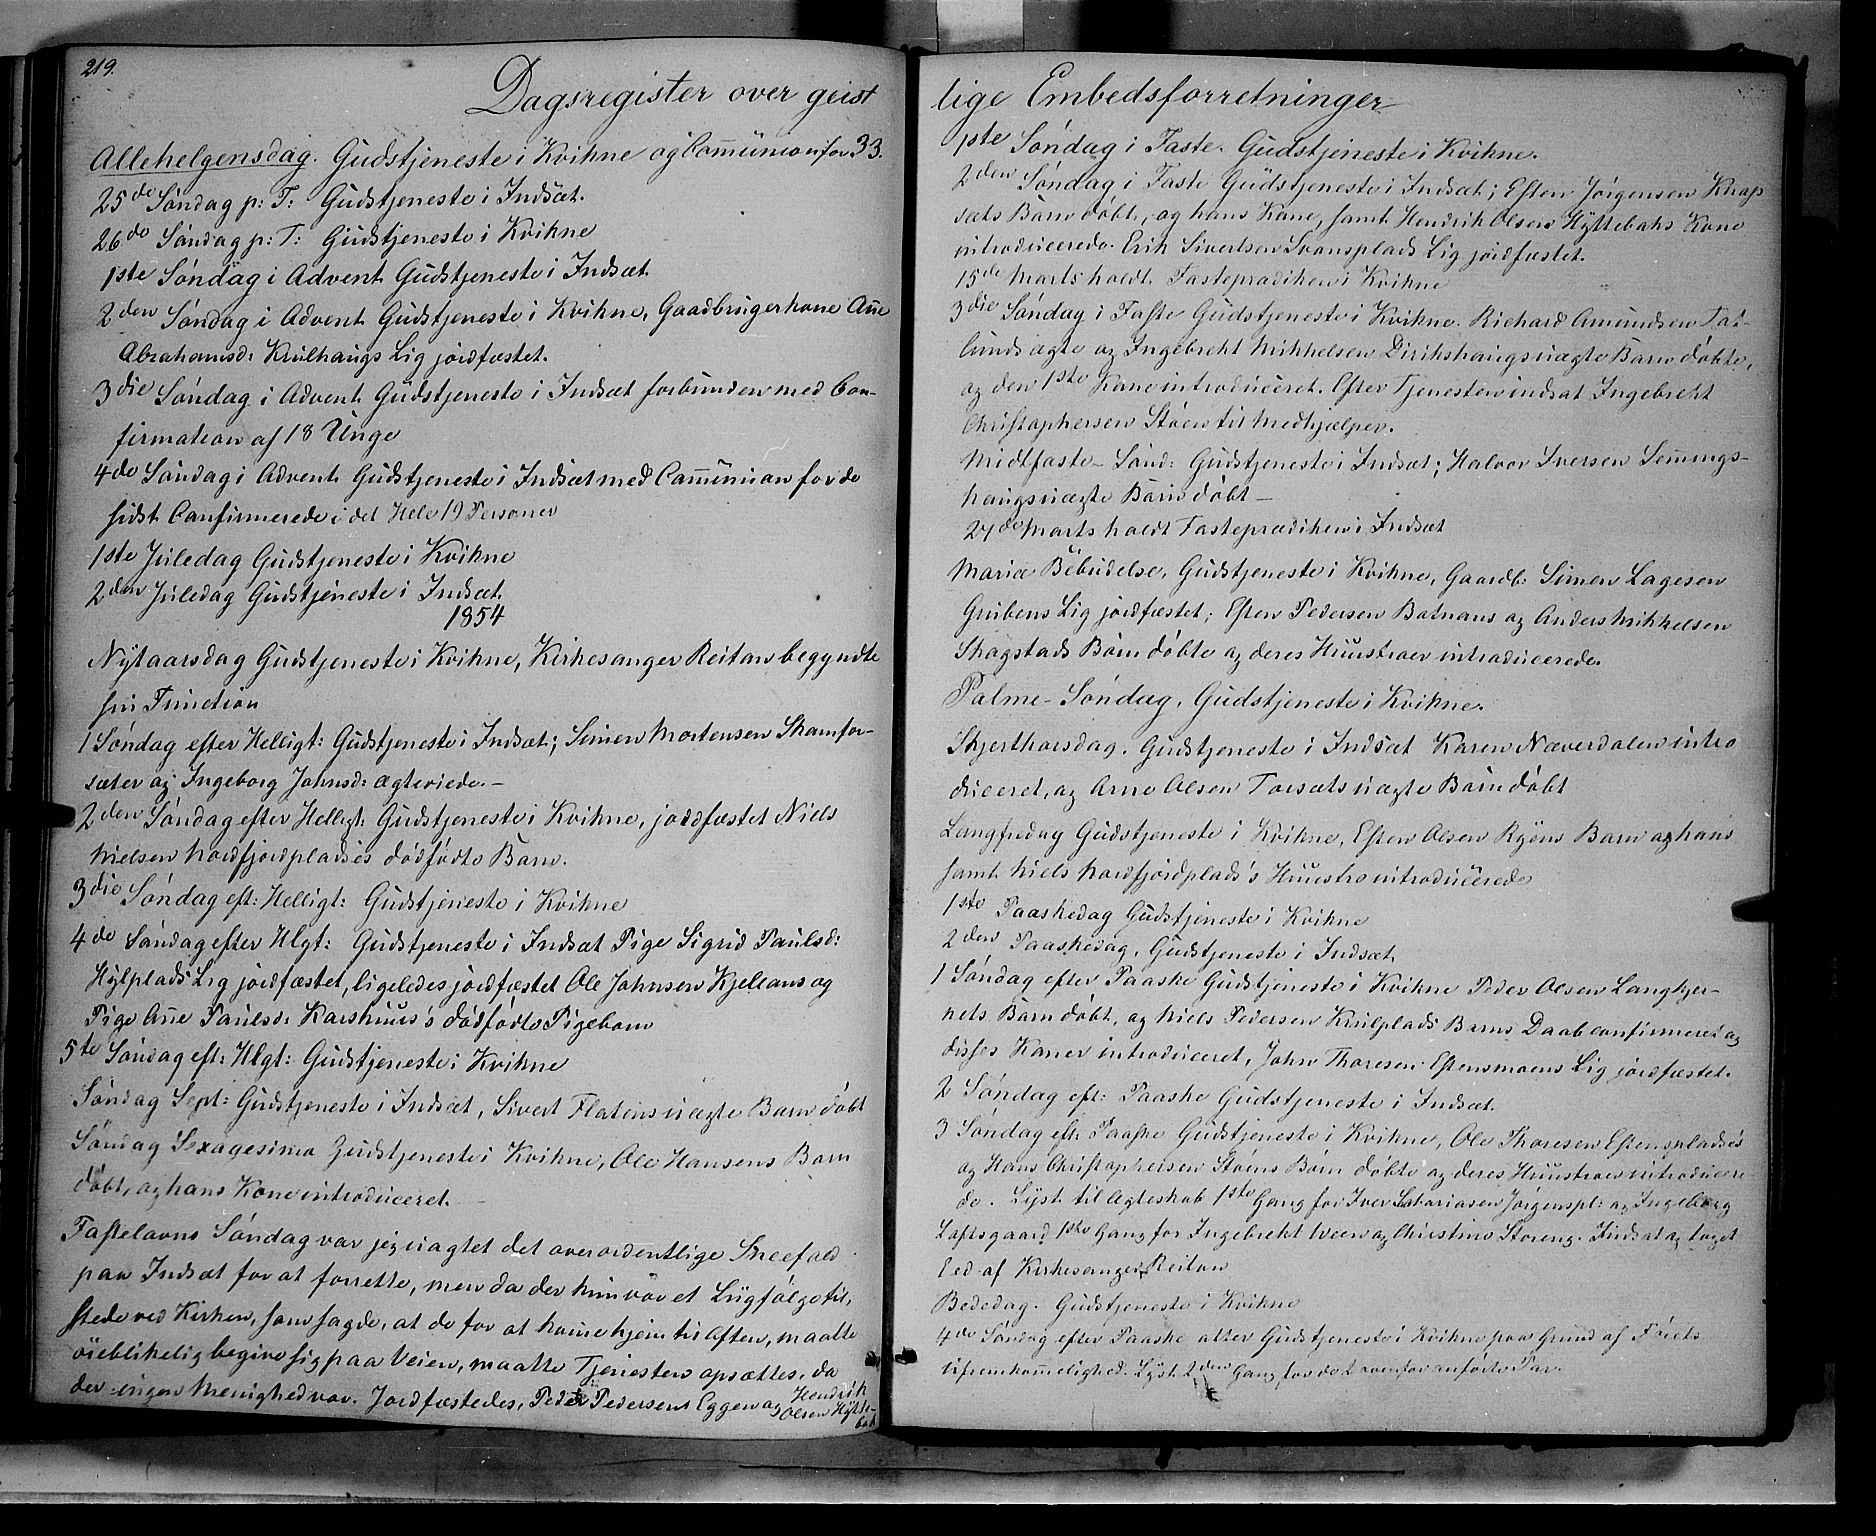 219.
Dagsregister over geist
Allehelgensdag. Gudstjeneste i Kvikne og Communion for 33.
25de Søndag p: T: Gudstjeneste i Indsæt.
26de Søndag p: T: Gudstjeneste i Kvikne
1ste Søndag i Advent Gudstjeneste i Indsæt
2den Søndag i Advent Gudstjeneste i Kvikne, Gaardbrugerkone Ane
Abrahamsd: Krulhaugs Lig jordfæstet.
3die Søndag i Advent Gudstjeneste i Indsæt forbunden med Con-
firmation af 18 Unge
4de Søndag i Advent Gudstjeneste i Indsæt med Communion for de
sidst Confirmerede i det Hele 19 Personer
1ste Juledag Gudstjeneste i Kvikne
2den Juledag Gudstjeneste i Indsæt.
1854
Nytaarsdag Gudstjeneste i Kvikne, Kirkesanger Reitan begyndte
sin Function
1 Søndag efter Helligt: Gudstjeneste i Indsæt; Simen Mortensen Skamfer-
sæter og Ingeborg Johnsd: ægteviede.-
2den Søndag efter Helligt: Gudstjeneste i Kvikne, jordfæstet Niels
Nielsen Nordfjordpladsés dødfødte Barn.
3die Søndag eft: Helligt: Gudstjeneste i Kvikne
4de Søndag efter Hlgt: Gudstjeneste i Indsæt Pige Sigrid Paulsd:
Hylplads Lig jordfæstet, ligeledes jordfæstet Ole Johnsen Kjeleaas og
Pige Ane Paulsd: Karshuus's dødfødte Pigebarn
5te Søndag eft: Hlgt: Gudstjeneste i Kvikne
Søndag Sept: Gudstjeneste i Indsæt, Sivert Flatens uægte Barn døbt
Søndag Sexagesima Gudstjeneste i Kvikne, Ole Hansens Barn
døbt, og hans Kone introduceret.
Fastelavns Søndag var jeg uagtet det overordentlige Sneefald
paa Indsæt for at forrette, men da der kun var et Liigfølge til
stede ved Kirken, som sagde, at de for at komme hjem til Aften, maatte
øieblikkelig begive sig paa Veien, maatte Tjenesten opsættes, da
der ingen Menighed var. Jordfæstedes, Peder Pedersens Eggen og Hendrik
Olsen Hytte-
bak
lige Embedsforretninger
1ste Søndag i Faste. Gudstjeneste i Kvikne.
2den Søndag i Faste Gudstjeneste i Indsæt; Esten Jørgensen Knap
sæts Barn døbt, og hans Kone, samt Hendrik Olsens Hyttebaks Kone
introducerede. Erik Sivertsen Svensplads Lig jordfæstet.
15de Marts holdt Fasteprædiken i Kvikne
3die Søndag i Faste Gudstjeneste i Kvikne. Richard Amundsen Fas-
lunds ægte og Ingebrekt Mikkelsen Dirikshaugs uægte Børn døbte,
og den 1ste Kone introduceret. Efter Tjenesten indsat Ingebrekt
Christophersen Støen til Medhjælper.
Midtfaste-Sønd: Gudstjeneste i Indsæt; Halvor Iversen Semmings-
haugs uægte Barn døbt -
27de Marts holdt Fasteprædiken i Indsæt
Mariæ Bebudelse, Gudstjeneste i Kvikne, Gaardb: Simen Lagesen
Grubens Lig jordfæstet; Esten Pedersen Balnans og Anders Mikkelsen
Skogstads Børn døbte og deres Huustroer introducerede.
Palme-Søndag, Gudstjeneste i Kvikne.
Skjerthorsdag. Gudstjeneste i Indsæt Karen Næverdalen intro
duceret, og Arne Olsen Torsæts uægte Barn døbt
Langfredag Gudstjeneste i Kvikne, Esten Olsen Ryens Barn og hans
samt Niels Nordfjordplads's Huustro introducerede
1ste Paaskedag Gudstjeneste i Kvikne
2den Paaskedag, Gudstjeneste i Indsæt.
1 Søndag efter Paaske Gudstjeneste i Kvikne Peder Olsen Langkjer-
nets Barn døbt, og Niels Pedersen Krulplads Barns Daab confirmeret og
disses Koner introduceret, John Thoresen Estensmoens Lig jordfæstet.
2 Søndag eft: Paaske Gudstjeneste i Indsæt.
3 Søndag eft: Paaske Gudstjeneste i Kvikne, Ole Thoresen Estenspladsés
og Hans Christophersen Støens Børn døbte og deres Huustroer introducere
de. Lyst til Ægteskab 1ste Gang for Iver Zakariasen Jørgenspl: og Ingeborg
Loftsgaard 1ste Gang for Ingebrekt Ween og Christine Storeng. Indsat og taget
Eed af Kirkesanger Reitan
Bededag. Gudstjeneste i Kvikne
4de Søndag efter Paaske atter Gudstjeneste i Kvikne paa Grund af Føiets
ufremkommelighed. Lyst 2den Gang for de 2 ovenfor anførte Par.